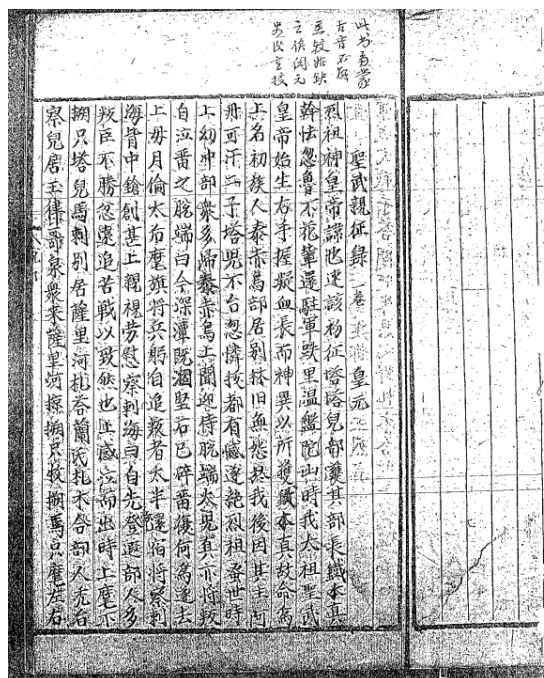 此书多蒙
古音不
聖武親征録 一卷 皇元
烈祖神皇帝諱也速該初征塔塔兒部獲其部長鐵木真
斡怯忽魯不花輩還駐軍跌里溫盤陀山時我太祖聖武
皇帝始生右手握凝血長而神異以所獲鐵木真故命為
上名初族人泰赤烏部居别林旧無怨於我後因其主阿
丹可汗二子塔兒不台忽憐拔都有憾遂絶烈祖蚤世時
上幼冲部衆多歸泰赤烏上聞近侍脫端火兒真亦将叛
自泣畱之脫端曰今深潭既涸堅石已碎畱復何為遂去
上母月倫太后麾旗将兵躬自追叛者太半還宿将察剌
海背中鎗創甚上親視勞慰察剌海曰自先登遐部人多
叛臣不勝忿遠追苦戰以致然也上感泣而出時上麾下
搠只塔兒馬剌别居薩里河札荅蘭氏札木合部人禿台
察兒居玉律哥泉衆来薩里河掠搠只牧搠馬只麾左右